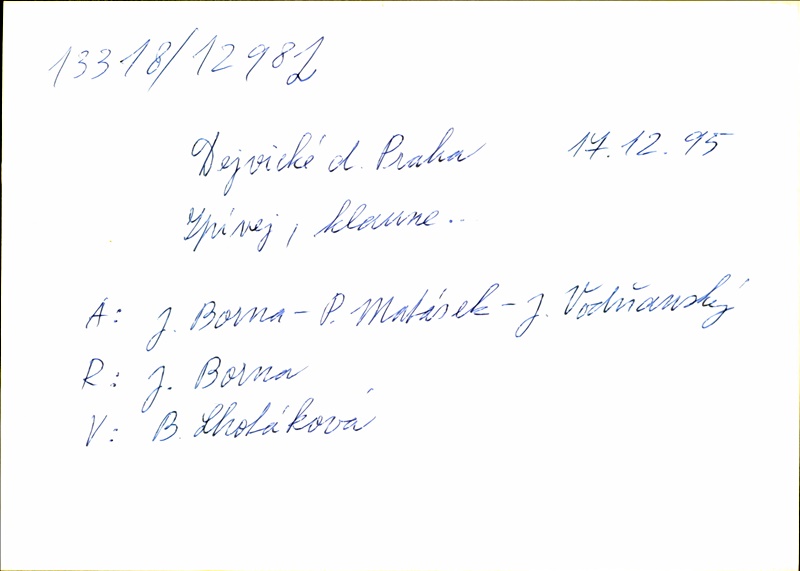 13318/1298L
Dejvické d. Praha 17.12.95
Zpívej, klaune...
A: J. Borna - P. Matásek - J. Vodňanský
R: J. Borna
V: B. Lhotáková